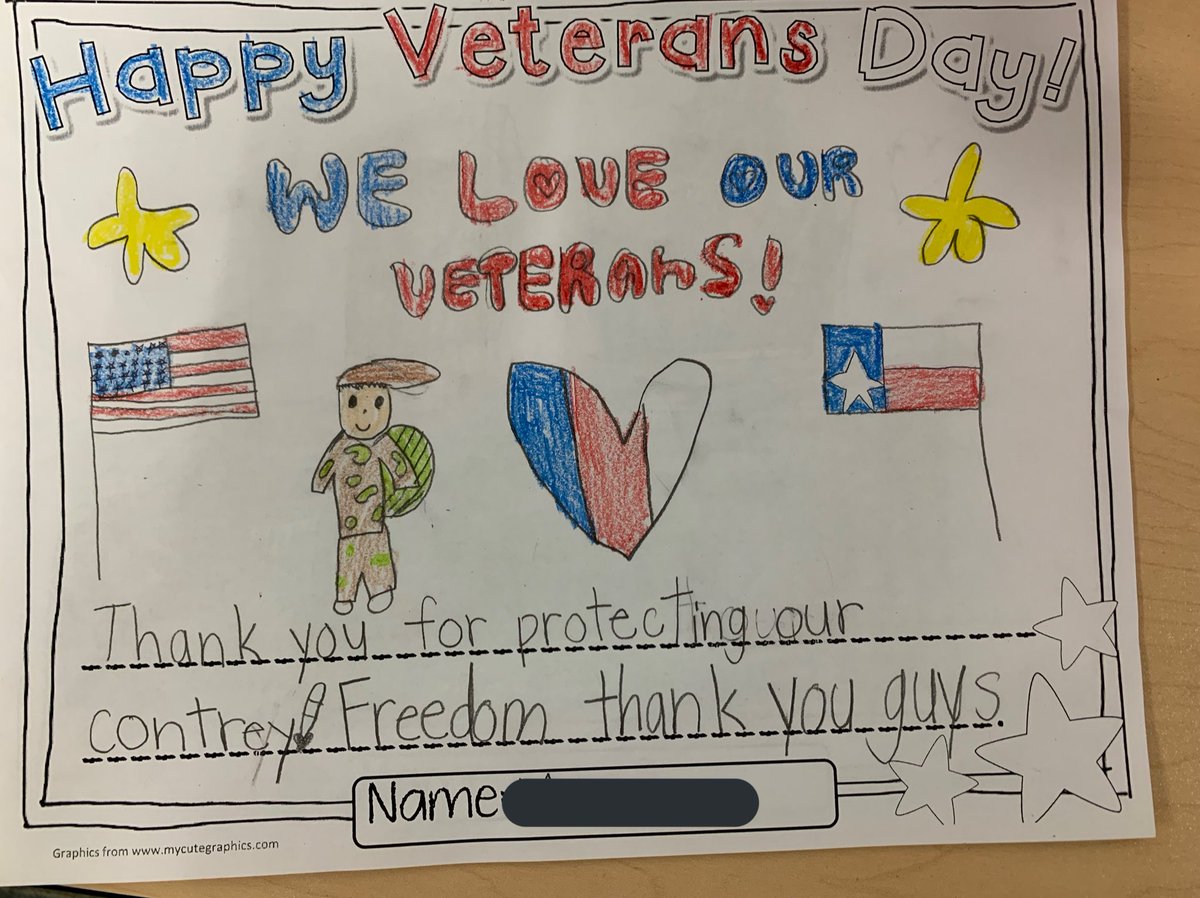 Happy Veterans Day!
WE LOVE OUR
VETERanS!
Thank you for protecting our
contrey! Freedom thank you guys.
Name
Graphics from www.mycutegraphics.com